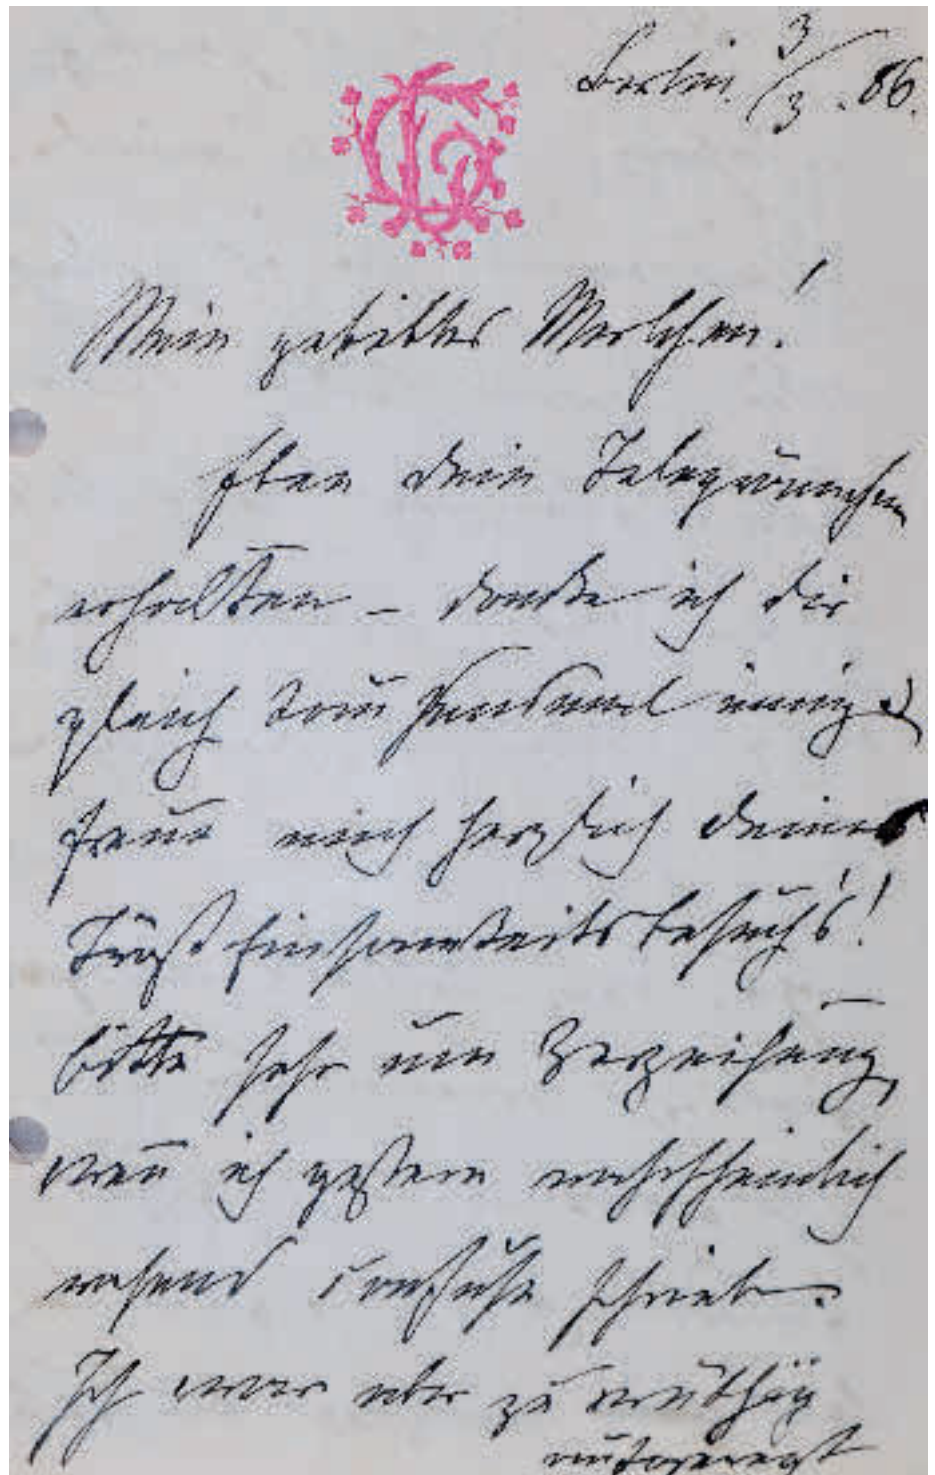 Berlin 3/3. 86.
Mein geliebtes
Eben Dein Telegrämmchen
erhalten – danke ich Dir
gleich tausendmal innig &
freue mich herzlich Deines
bitte sehr um Verzeihung,
wenn ich gestern wahrscheinlich
rasend confuse schrieb.
Ich war aber zu
aufgeregt